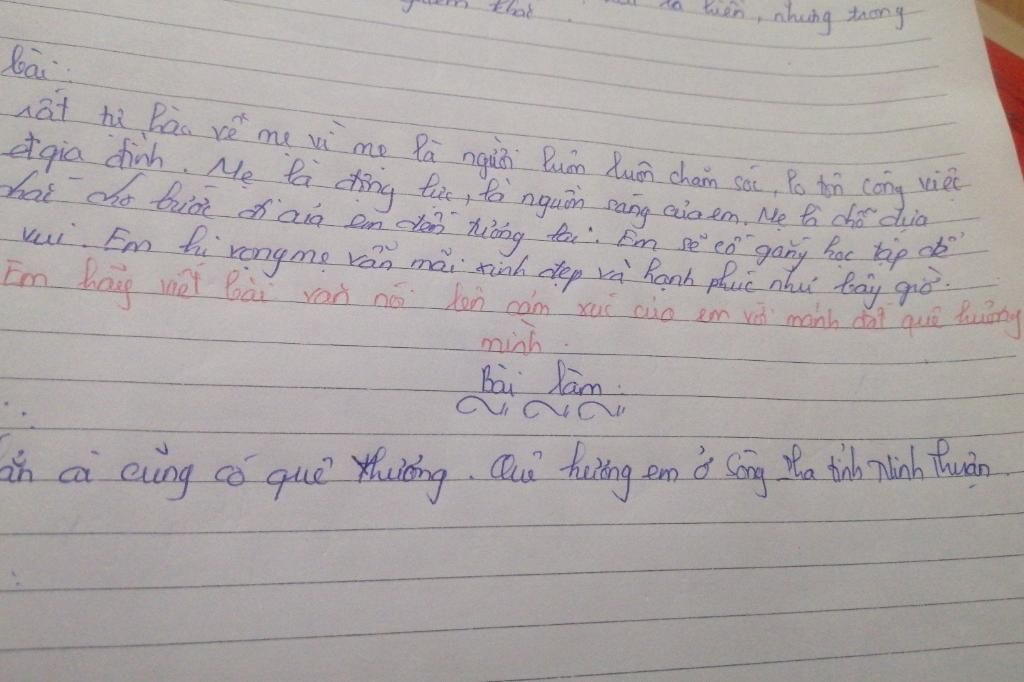 ta hiền, nhưng trong
bài:
rất tự hào về mẹ vì mẹ là người luôn luôn chăm sóc, lo tôn công việc
gia đình. Mẹ là động lực, là nguồn sáng của em. Mẹ là chỗ dựa
cho bước đi của em đến tương lai. Em sẽ cố gắng học tập để
vui. Em hi vọng mẹ vẫn mãi xinh đẹp và hạnh phúc như bây giờ.
Em hãy viết bài văn nói lên cảm xúc của em với mảnh đất quê hương
mình.
Bài làm:
ai cũng có quê thương. Quê hương em ở Sông Pha tỉnh Ninh Thuận